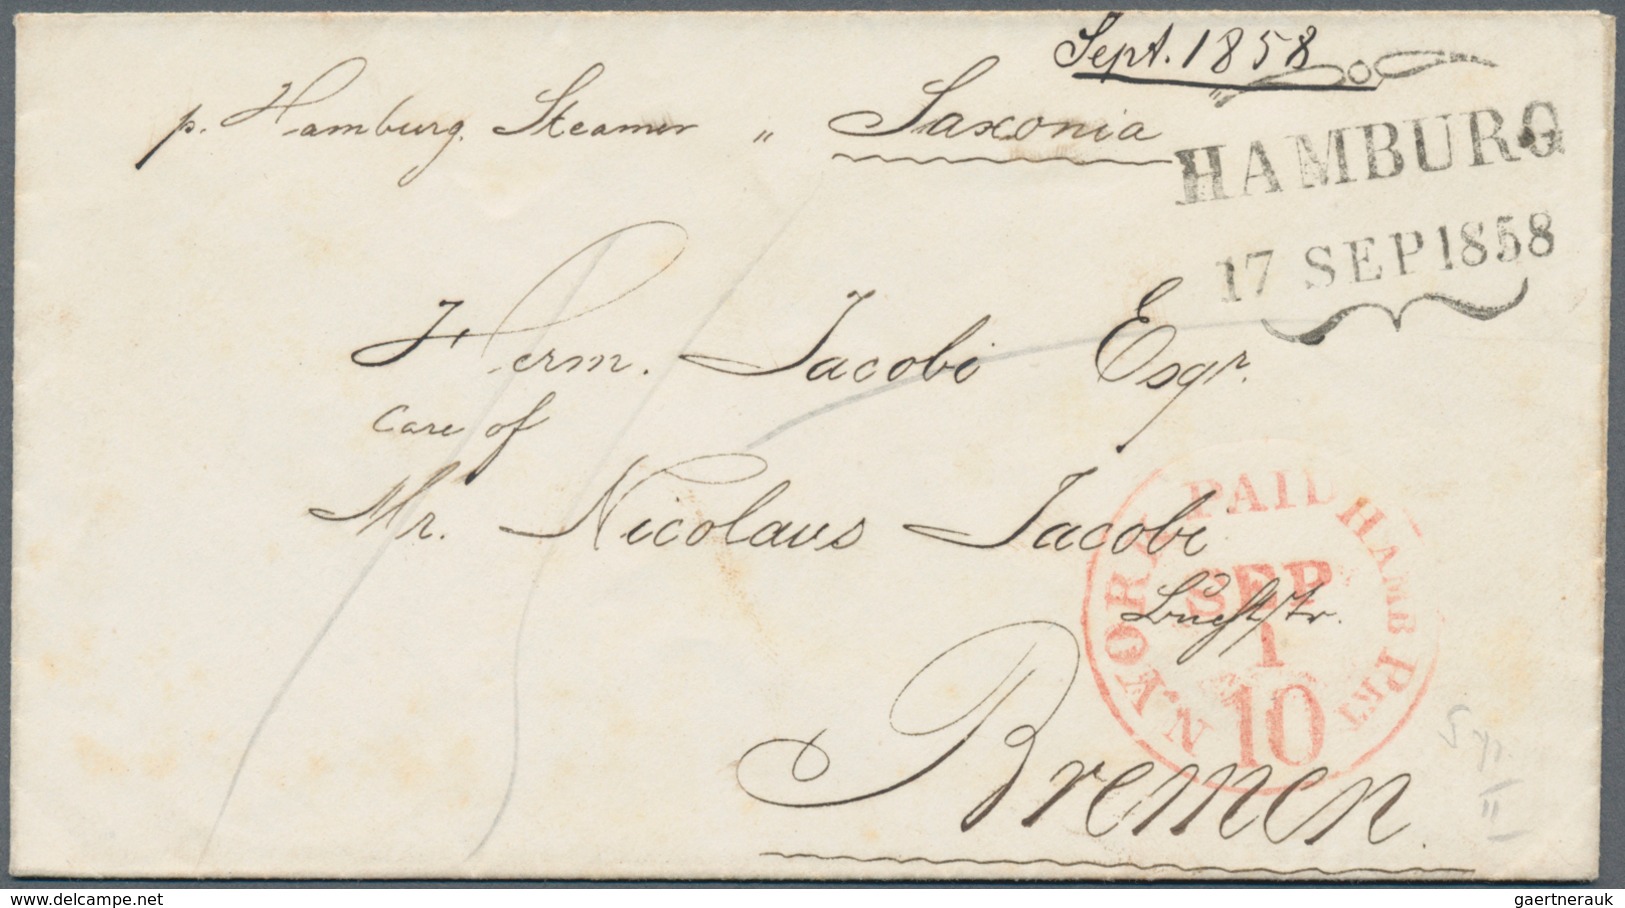 Sept. 1858
p. Hamburg. Steamer " Saxonia "
HAMBURG
17 SEP 1858
Herm. Jacobi Esqr.
Care of
Mr. Nicolaus Jacobi
N. YORK PAID HAMB PKT
SEP
1
10
Bremen.
delcampe.net
gaertnerauk